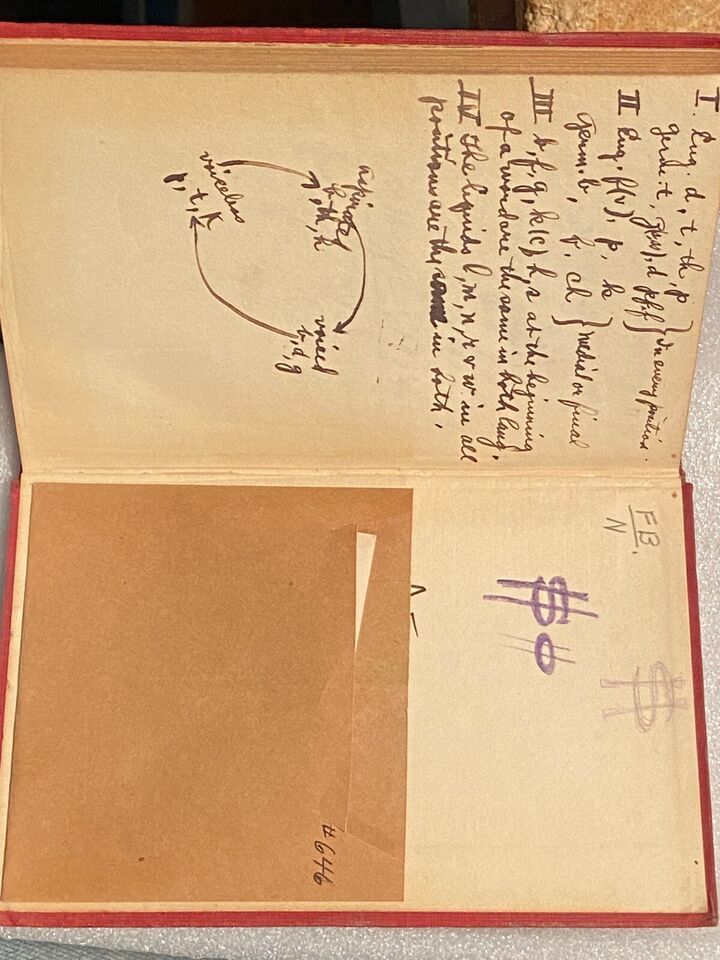 I. Eng. d, t, th, p } In every position.
Germ. t, z(ss), d pf, f
II Eng. f(v), p, k } medial or final
Germ. b, f, ch
III b, f, g, k(c), h, s at the beginning
of a word are the same in both lang.
IV The liquids l, m, n, r & w in all
positions are the same in both.
aspirated
th, h
voiceless
p, t, k
voiced
b, d, g
FB.
N
$
$
#646